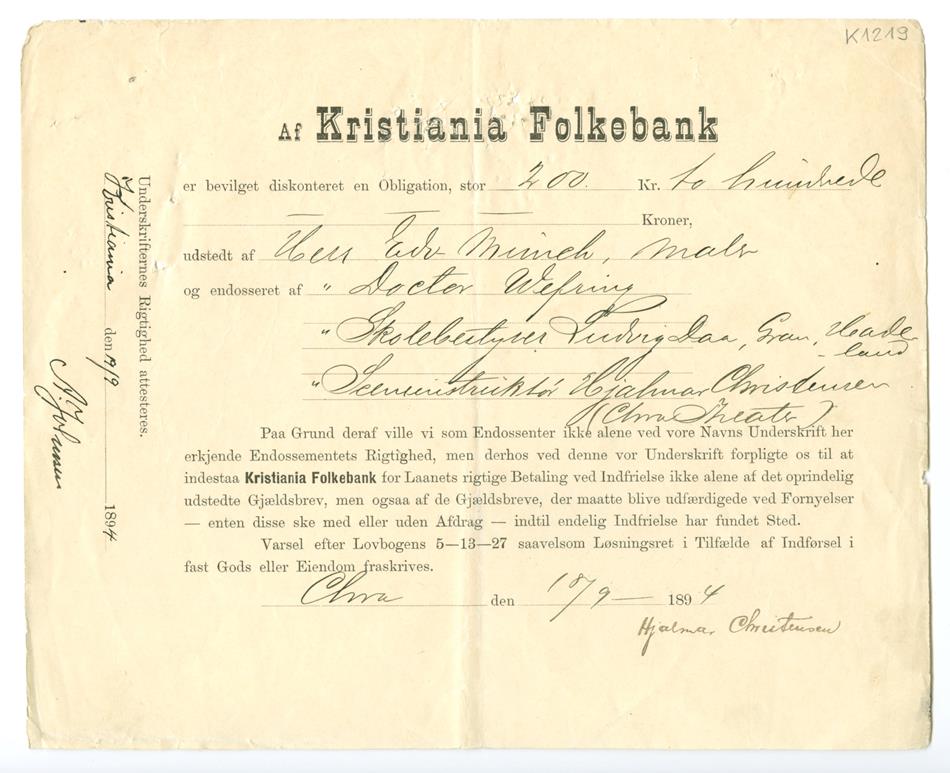 K1219
Af Kristiania Folkebank
er bevilget diskonteret en Obligation, stor 200. Kr. to hundrede
— — — Kroner,
udstedt af Herr Edv Munch, Maler
og endosseret af " Doctor Wefring
" Skolebestyrer Ludvig Daa, Gran, Hade-
land
" Sceneinstruktør Hjalmar Christensen
(Chra Theater)
Paa Grund deraf ville vi som Endossenter ikke alene ved vore Navns Underskrift her
erkjende Endossementets Rigtighed, men derhos ved denne vor Underskrift forpligte os til at
indestaa Kristiania Folkebank for Laanets rigtige Betaling ved Indfrielse ikke alene af det oprindelig
udstedte Gjældsbrev, men ogsaa af de Gjældsbreve, der maatte blive udfærdigede ved Fornyelser
— enten disse ske med eller uden Afdrag — indtil endelig Indfrielse har fundet Sted.
Varsel efter Lovbogens 5—13—27 saavelsom Løsningsret i Tilfælde af Indførsel i
fast Gods eller Eiendom fraskrives.
Chra den 18/9 — 1894
Hjalmar Christensen
Underskrifternes Rigtighed attesteres.
Kristiania den 19/9 1894
Johnsen